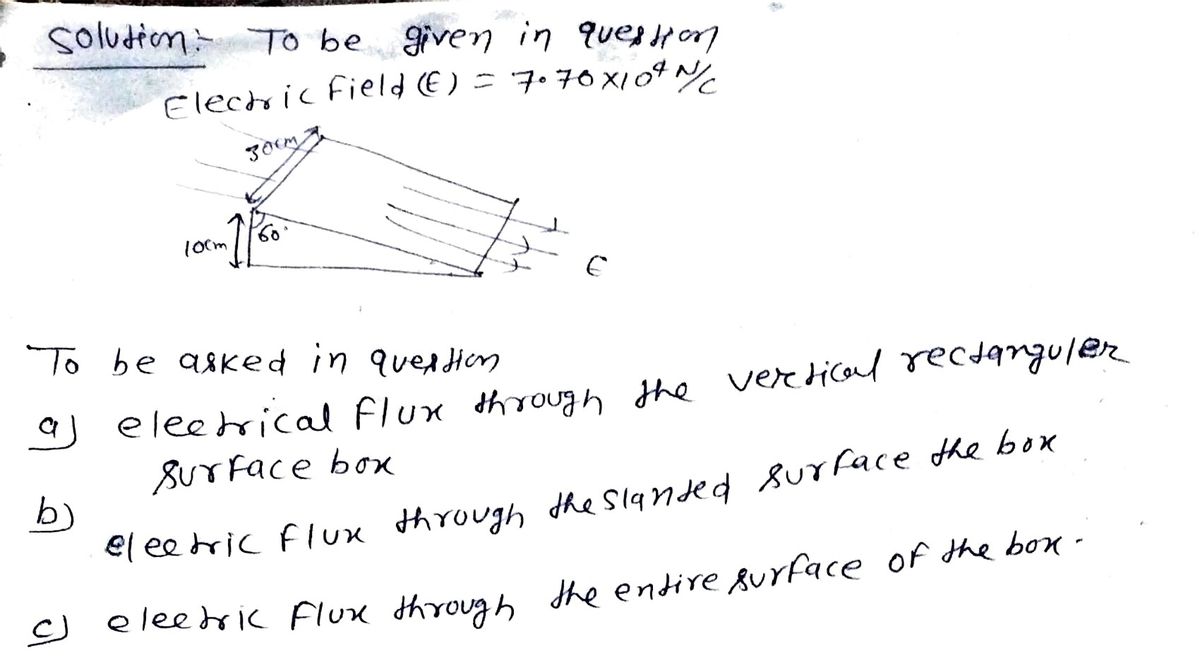 Solution:- To be given in question
Electric Field (E) = 7.70 X10⁴ N/C
30cm
10cm
60°
E
To be asked in question
a) eleetrical Flux through the vertical rectanguler
surface box
b)
eleetric flux through the slanted surface the box
c) eleetric Flux through the entire surface of the box.